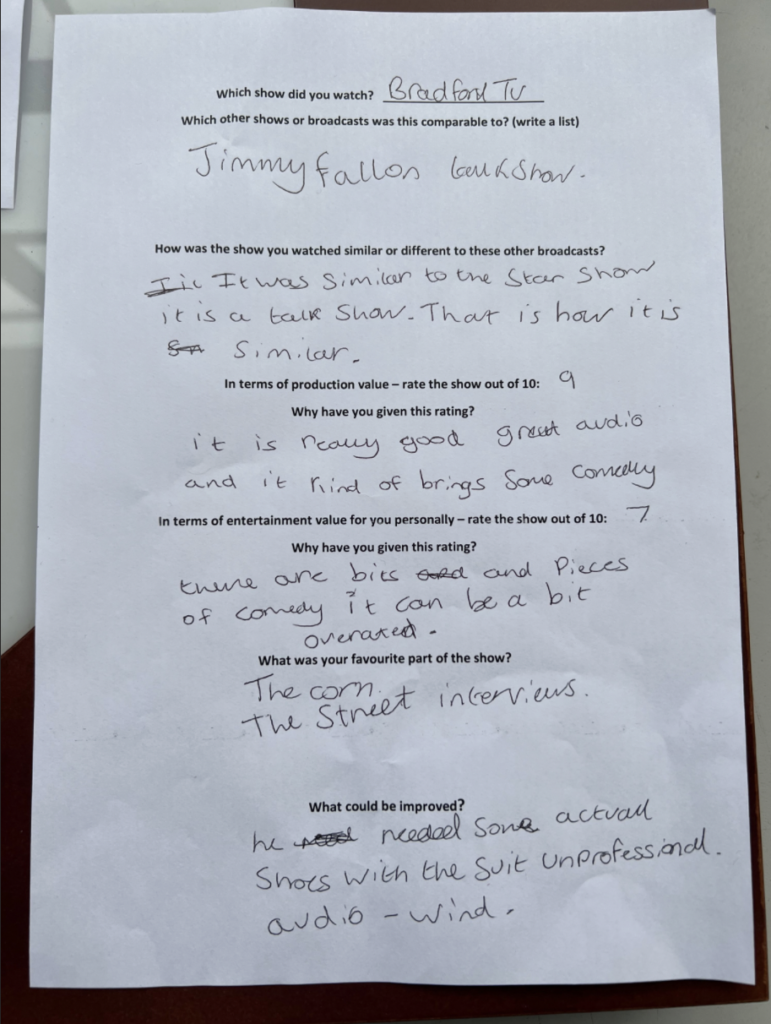 Which show did you watch? Bradford Tv
Which other shows or broadcasts was this comparable to? (write a list)
Jimmy fallon talkshow.
How was the show you watched similar or different to these other broadcasts?
It was Similar to the Star Show
it is a talk Show. That is how it is
Similar.
In terms of production value – rate the show out of 10: 9
Why have you given this rating?
it is really good great audio
and it kind of brings Some comedy
In terms of entertainment value for you personally – rate the show out of 10: 7
Why have you given this rating?
there are bits and Pieces
of comedy it can be a bit
overated.
What was your favourite part of the show?
The corn.
The Street interviews.
What could be improved?
he needed some actuall
Shoes with the Suit unprofessional.
audio - wind.